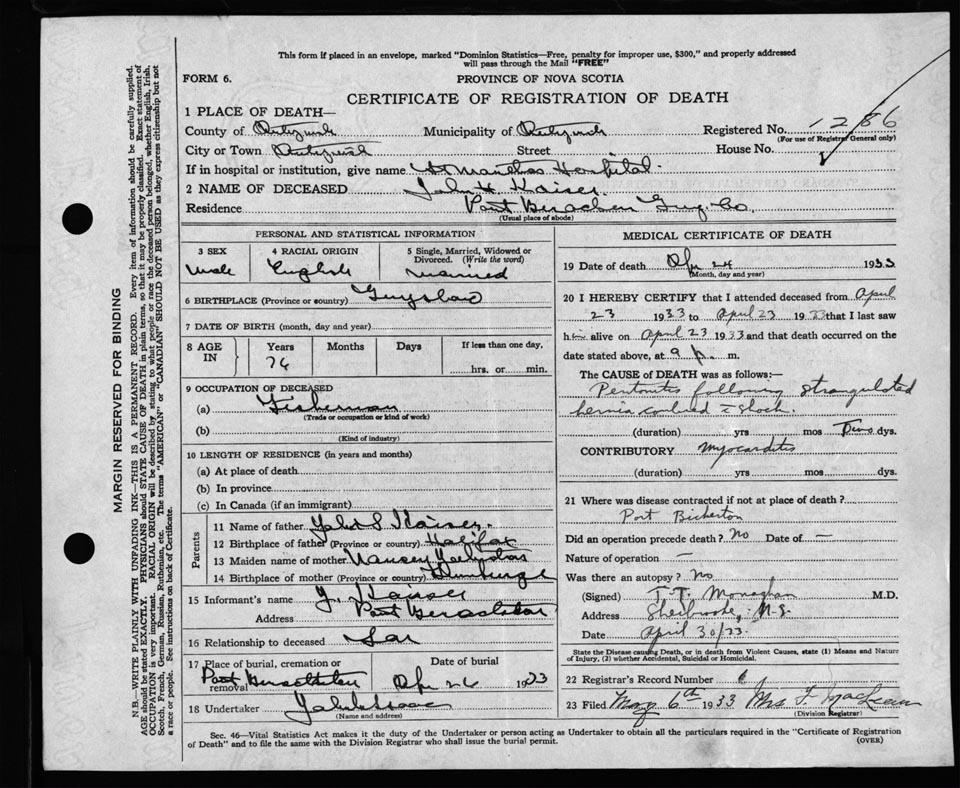 This form if placed in an envelope, marked "Dominion Statistics—Free, penalty for improper use, $300," and properly addressed
will pass through the Mail "FREE"
FORM 6.
PROVINCE OF NOVA SCOTIA
CERTIFICATE OF REGISTRATION OF DEATH
1 PLACE OF DEATH—
County of Municipality of Registered No. 1286
(For use of Registrar General only)
City or Town Street House No.
If in hospital or institution, give name St Marthas Hospital
2 NAME OF DECEASED John H Kaiser
Residence Port Guy. Co.
(Usual place of abode)
PERSONAL AND STATISTICAL INFORMATION
3 SEX
4 RACIAL ORIGIN
5 Single, Married, Widowed or Divorced. (Write the word)
Male English married
6 BIRTHPLACE (Province or country)
7 DATE OF BIRTH (month, day and year)
8 AGE IN
Years Months Days If less than one day,
76 hrs. or min.
9 OCCUPATION OF DECEASED
(a) Fisherman
(Trade or occupation or kind of work)
(b)
(Kind of industry)
10 LENGTH OF RESIDENCE (in years and months)
(a) At place of death
(b) In province
(c) In Canada (if an immigrant)
Parents
11 Name of father Kaiser
12 Birthplace of father (Province or country) Halifax
13 Maiden name of mother Nancy
14 Birthplace of mother (Province or country)
15 Informant's name Kaiser
Address Port
16 Relationship to deceased
17 Place of burial, cremation or removal Port
Date of burial
Apr 26 1933
18 Undertaker
(Name and address)
MEDICAL CERTIFICATE OF DEATH
19 Date of death Apr 24 1933
(Month, day and year)
20 I HEREBY CERTIFY that I attended deceased from April
23 1933 to April 23 1933 that I last saw
him alive on April 23 1933 and that death occurred on the
date stated above, at 9 p. m.
The CAUSE of DEATH was as follows:—
Peritonitis following strangulated
hernia shock.
(duration) yrs mos dys.
CONTRIBUTORY Myocarditis
(duration) yrs mos dys.
21 Where was disease contracted if not at place of death?
Port Bickerton
Did an operation precede death? No Date of —
Nature of operation —
Was there an autopsy? No
(Signed) T. T. Monaghan M.D.
Address Sherbrooke, N.S.
Date April 30/33.
State the Disease causing Death, or in death from Violent Causes, state (1) Means and Nature
of Injury, (2) whether Accidental, Suicidal or Homicidal.
22 Registrar's Record Number
23 Filed May 6th 1933 Mrs F. MacLean
(Division Registrar)
Sec. 46—Vital Statistics Act makes it the duty of the Undertaker or person acting as Undertaker to obtain all the particulars required in the "Certificate of Registration
of Death" and to file the same with the Division Registrar who shall issue the burial permit.
(OVER)
MARGIN RESERVED FOR BINDING
N.B.—WRITE PLAINLY WITH UNFADING INK—THIS IS A PERMANENT RECORD. Every item of information should be carefully supplied.
AGE should be stated EXACTLY. PHYSICIANS should STATE CAUSE OF DEATH in plain terms, so that it may be properly classified. Exact statement of
OCCUPATION is very important. RACIAL ORIGIN will be described by stating to what people or race the deceased person belonged, whether English, Irish,
Scotch, French, German, Russian, Ruthenian, etc. The terms "AMERICAN" or "CANADIAN" SHOULD NOT BE USED as they express citizenship but not
a race or people. See instructions on back of Certificate.